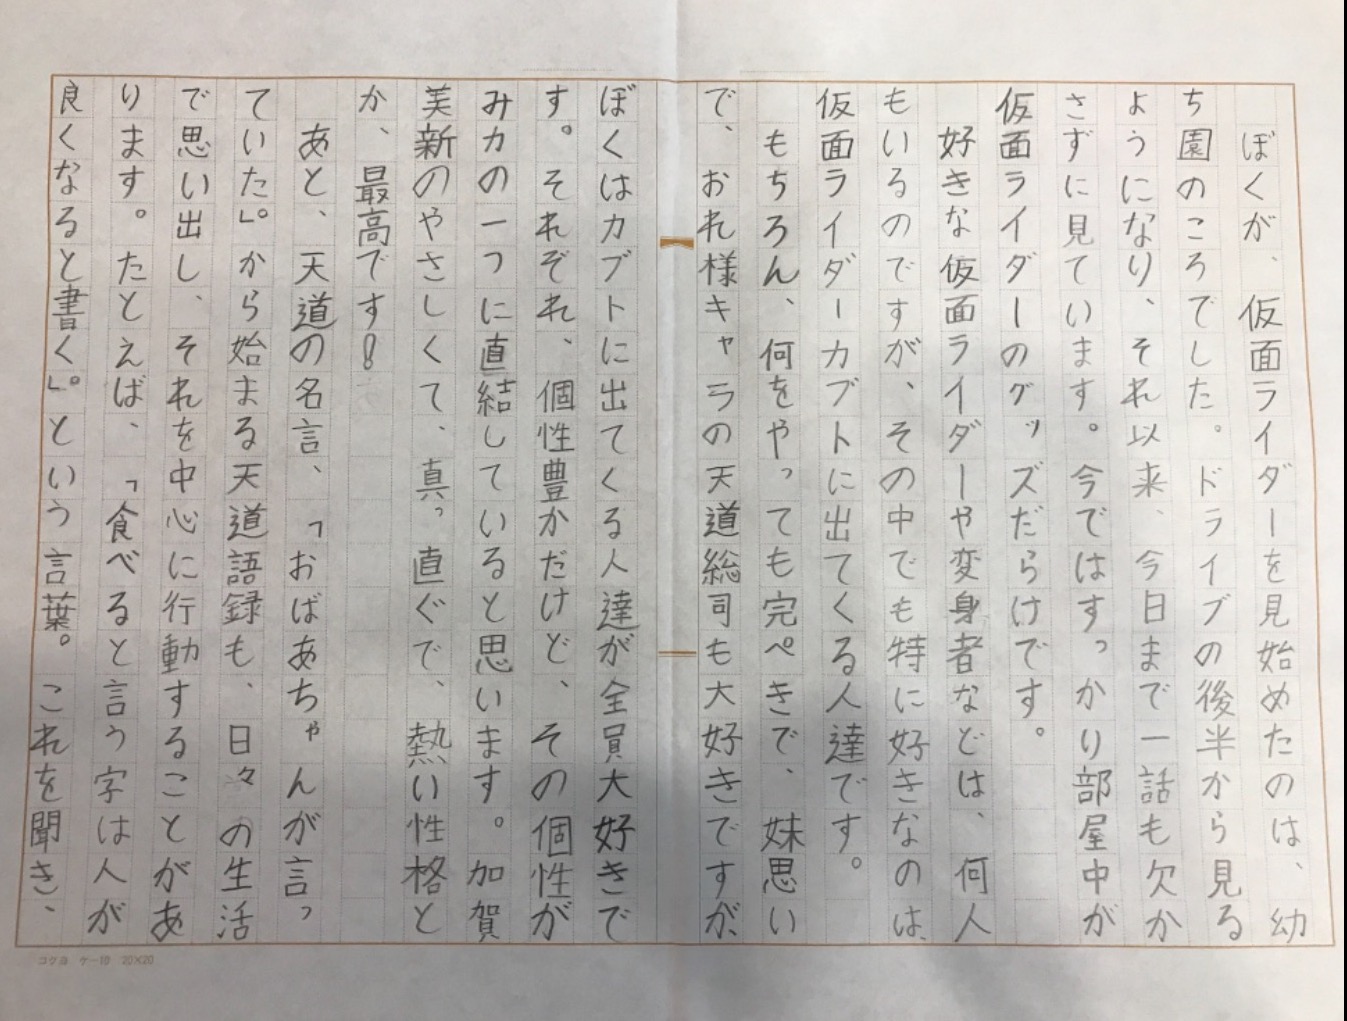 ぼくが、仮面ライダーを見始めたのは、幼
ち園のころでした。ドライブの後半から見る
ようになり、それ以来、今日まで一話も欠か
さずに見ています。今ではすっかり部屋中が
仮面ライダーのグッズだらけです。
好きな仮面ライダーや変身者などは、何人
もいるのですが、その中でも特に好きなのは、
仮面ライダーカブトに出てくる人達です。
もちろん、何をやっても完ぺきで、妹思い
で、おれ様キャラの天道総司も大好きですが、
ぼくはカブトに出てくる人達が全員大好きで
す。それぞれ、個性豊かだけど、その個性が
みカの一つに直結していると思います。加賀
美新のやさしくて、真っ直ぐで、熱い性格と
か、最高です!
あと、天道の名言、「おばあちゃんが言っ
ていた」。から始まる天道語録も、日々の生活
で思い出し、それを中心に行動することがあ
ります。たとえば、「食べると言う字は人が
良くなると書く」。という言葉。これを聞き、
コクヨ ケ-10 20×20